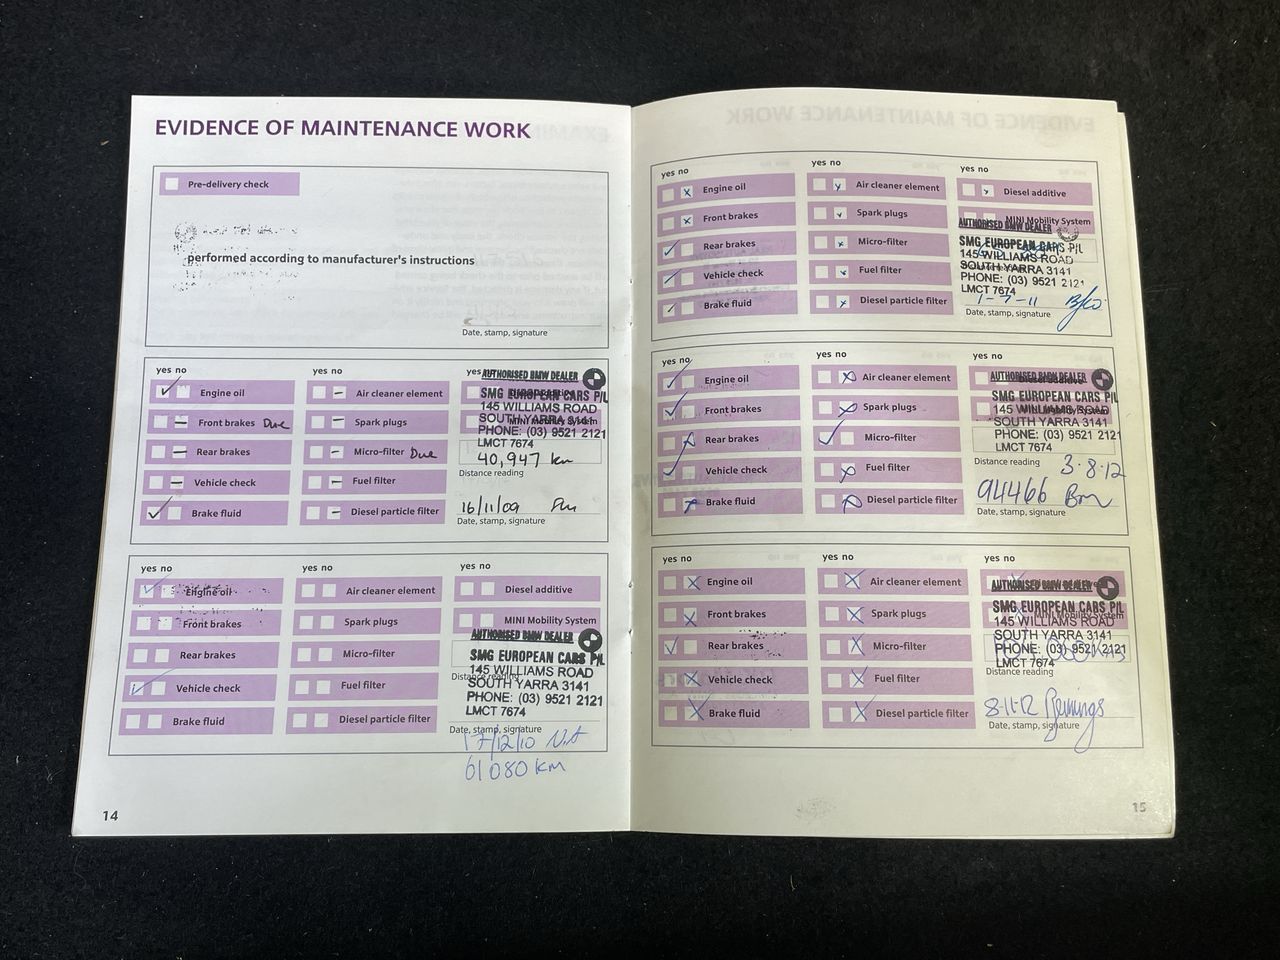 EVIDENCE OF MAINTENANCE WORK
Pre-delivery check
performed according to manufacturer's instructions
Date, stamp, signature
yes no
Engine oil
Front brakes Due
Rear brakes
Vehicle check
Brake fluid
yes no
Air cleaner element
Spark plugs
Micro-filter Due
Fuel filter
Diesel particle filter
yes
AUTHORISED BMW DEALER
SMG EUROPEAN CARS P/L
145 WILLIAMS ROAD
SOUTH YARRA 3141
PHONE: (03) 9521 2121
LMCT 7674
40,947 km
Distance reading
16/11/09
Date, stamp, signature
yes no
Engine oil
Front brakes
Rear brakes
Vehicle check
Brake fluid
yes no
Air cleaner element
Spark plugs
Micro-filter
Fuel filter
Diesel particle filter
yes no
Diesel additive
MINI Mobility System
AUTHORISED BMW DEALER
SMG EUROPEAN CARS P/L
145 WILLIAMS ROAD
Distance reading
SOUTH YARRA 3141
PHONE: (03) 9521 2121
LMCT 7674
Date, stamp, signature
17/12/10
61080 km
14
yes no
Engine oil
Front brakes
Rear brakes
Vehicle check
Brake fluid
yes no
Air cleaner element
Spark plugs
Micro-filter
Fuel filter
Diesel particle filter
yes no
Diesel additive
MINI Mobility System
AUTHORISED BMW DEALER
SMG EUROPEAN CARS P/L
145 WILLIAMS ROAD
SOUTH YARRA 3141
PHONE: (03) 9521 2121
LMCT 7674
1-7-11
Date, stamp, signature
yes no
Engine oil
Front brakes
Rear brakes
Vehicle check
Brake fluid
yes no
Air cleaner element
Spark plugs
Micro-filter
Fuel filter
Diesel particle filter
yes no
AUTHORISED BMW DEALER
SMG EUROPEAN CARS P/L
145 WILLIAMS ROAD
SOUTH YARRA 3141
PHONE: (03) 9521 2121
LMCT 7674
Distance reading
3.8.12
94466
Date, stamp, signature
yes no
Engine oil
Front brakes
Rear brakes
Vehicle check
Brake fluid
yes no
Air cleaner element
Spark plugs
Micro-filter
Fuel filter
Diesel particle filter
yes no
AUTHORISED BMW DEALER
SMG EUROPEAN CARS P/L
145 WILLIAMS ROAD
SOUTH YARRA 3141
PHONE: (03) 9521 2121
LMCT 7674
Distance reading
8-11-12
Date, stamp, signature
15